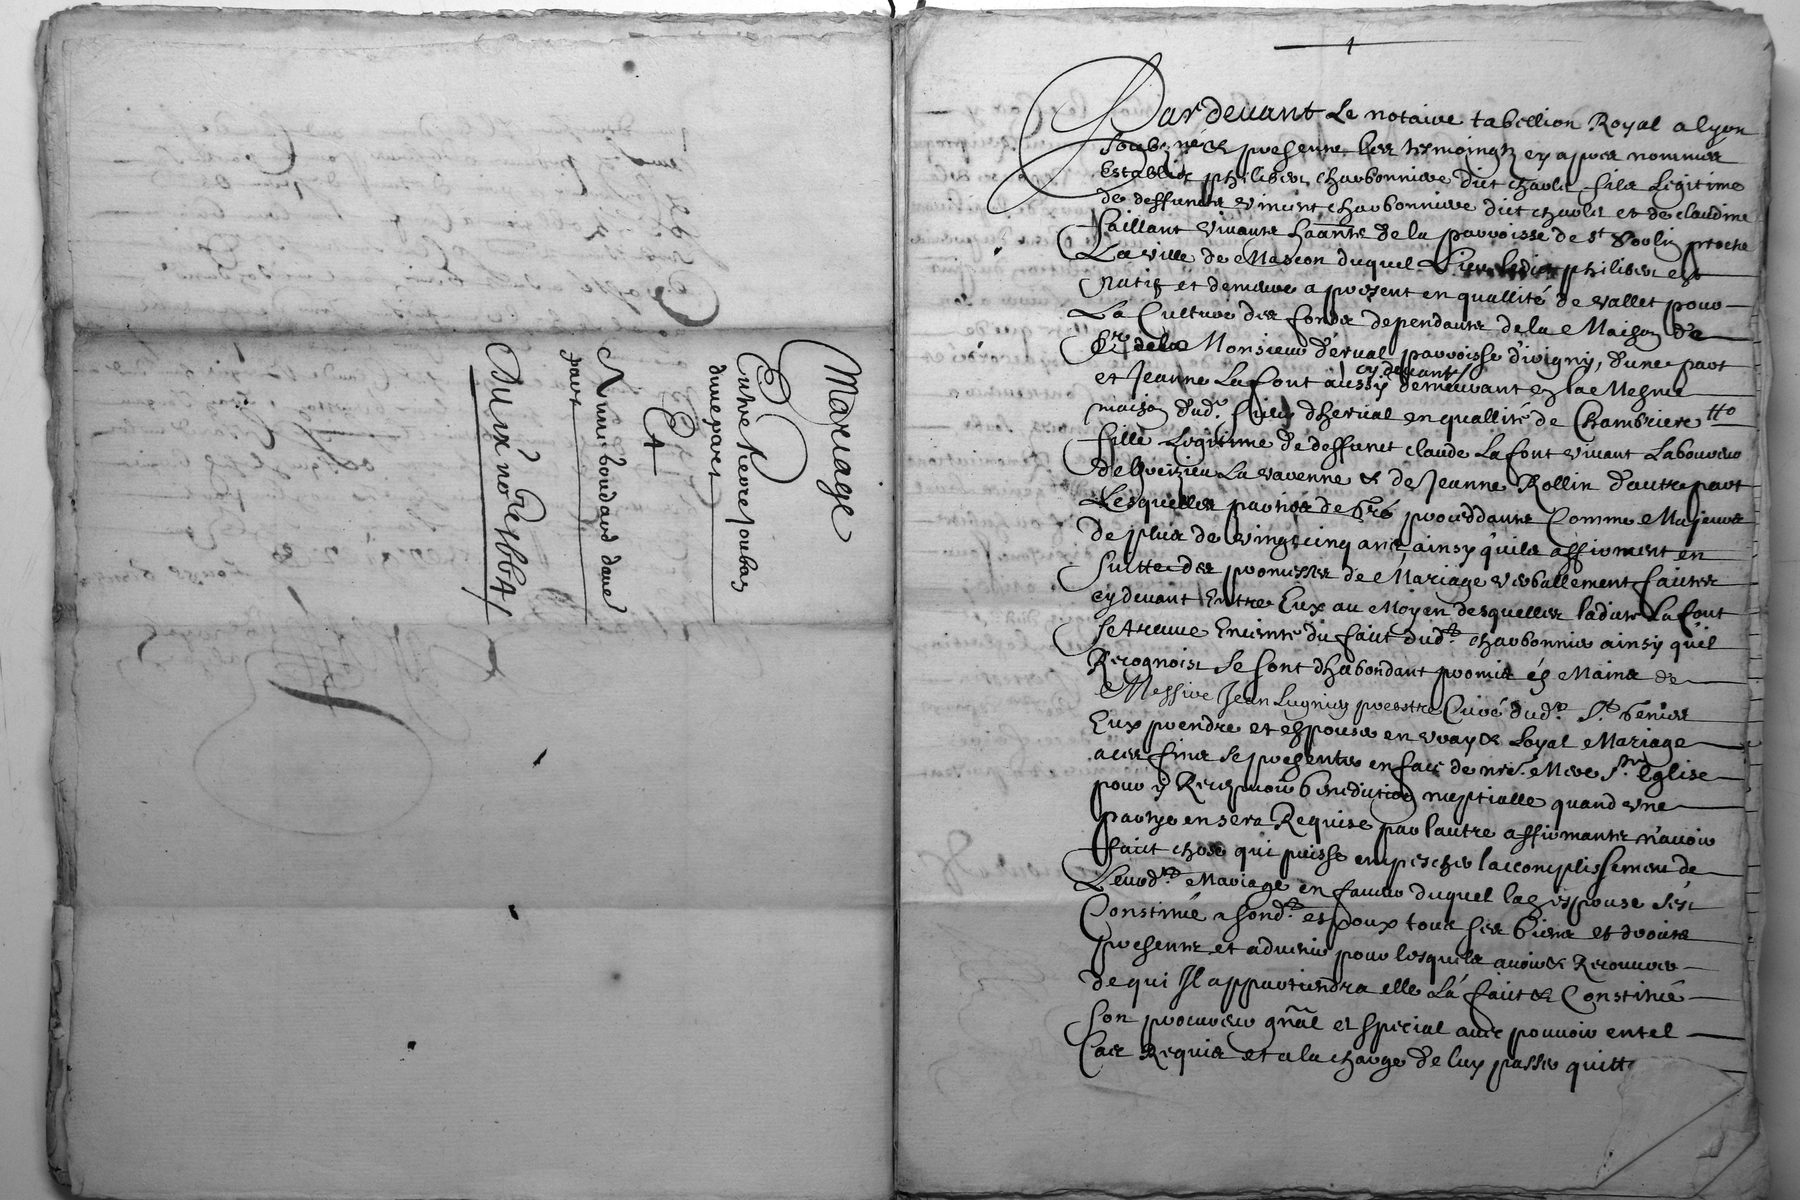 Mariage
Entre Pierre Joubar
d'une part
Et
Anne boudard d'aue
part
Du ix no 1664
Pardevant Le notaire tabellion Royal a lyon
soubznéz & presente les tesmoingtz ey apres nommes
Establi philibert charbonnier dict charle filz Legitime
de deffunct charbonniere dict charle et de claudine
Saillant vivante de la parroisse de st proche
La ville de Mascon duquel Lieu ledit philibert est
natif et demeure a present en quallité de vallet pour
La Culture des fondz dependantz de la Maison de
Monsieur d'erval parroisse d'ivigny, d'une part
et Jeanne Lafont aussy cy devant demeurant en la Mesme
maison dud. sieur dherval en quallité de Chambriere
fille Legitime de deffunct claude Lafont vivant Laboureur
de La varenne & de Jeanne Rollin d'autre part
Lesquelles parties de gré proceddant Comme Majeurs
de plus de vingt cinq ans, ainsy quilz affirment en
suitte des promesses de Mariage verballement faites
cy devant Entre Eux au Moyen desquelles ladite Lafont
se treuve Enceinte du faict dud. charbonnier ainsy quil
Recognoist se sont d'habondant promis és Mains de
Messire Jean Lugnier prebstre Curé dud.
Eux prendre et espouser en vray & Loyal Mariage
a ces fins se presenter en face de nre Mere ste Eglise
pour y Recepvoir benediction nuptialle quand une
partye en sera Requise par l'autre affirmantz n'avoir
faict chose qui puisse empescher laccomplissement de
Leurd. Mariage en faveur duquel la espouse s'est
Constitué a sond. espoux tous ses biens et droits
presentz et advenir pour lesquels avoir & Recouvrer
de qui Il appartiendra elle La faict & Constitué
son procureur gnal et special avec pouvoir en tel
Cas Requis et a la charge de luy passer quitt